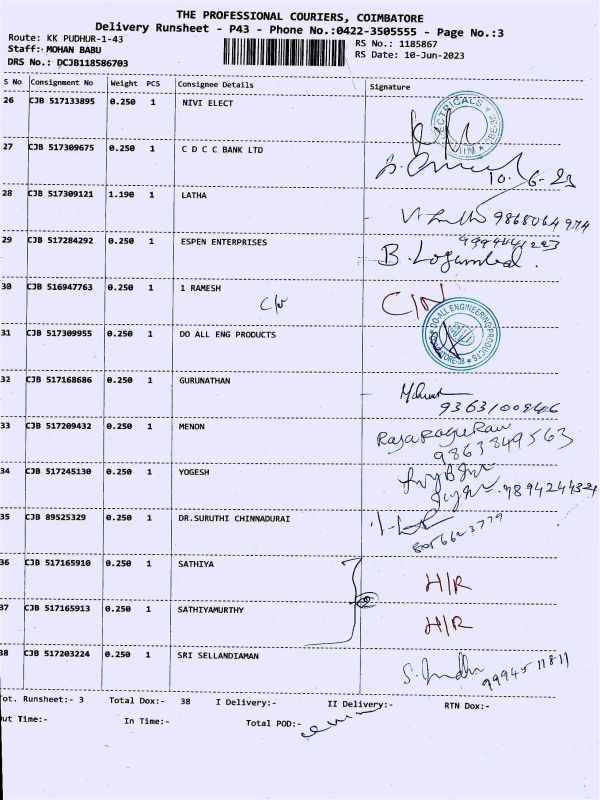 THE PROFESSIONAL COURIERS, COIMBATORE
Delivery Runsheet - P43 - Phone No.:0422-3505555 - Page No.:3
Route: KK PUDHUR-1-43
RS No.: 1185867
Staff: MOHAN BABU
RS Date: 10-Jun-2023
DRS No.: DCJB118586703
S No Consignment No Weight PCS Consignee Details Signature
26 CJB 517133895 0.250 1 NIVI ELECT
27 CJB 517309675 0.250 1 C D C C BANK LTD
10.6-23
28 CJB 517309121 1.190 1 LATHA
9868064974
29 CJB 517284292 0.250 1 ESPEN ENTERPRISES
B.
30 CJB 516947763 0.250 1 1 RAMESH
C/N
DO-ALL ENGINEERING PRODUCTS
31 CJB 517309955 0.250 1 DO ALL ENG PRODUCTS
32 CJB 517168686 0.250 1 GURUNATHAN
33 CJB 517209432 0.250 1 MENON
9863849563
34 CJB 517245130 0.250 1 YOGESH
35 CJB 89525329 0.250 1 DR.SURUTHI CHINNADURAI
36 CJB 517165910 0.250 1 SATHIYA
H/R
37 CJB 517165913 0.250 1 SATHIYAMURTHY
H/R
38 CJB 517203224 0.250 1 SRI SELLANDIAMAN
Tot. Runsheet:- 3 Total Dox:- 38 I Delivery:- II Delivery:- RTN Dox:-
Out Time:- In Time:- Total POD:-